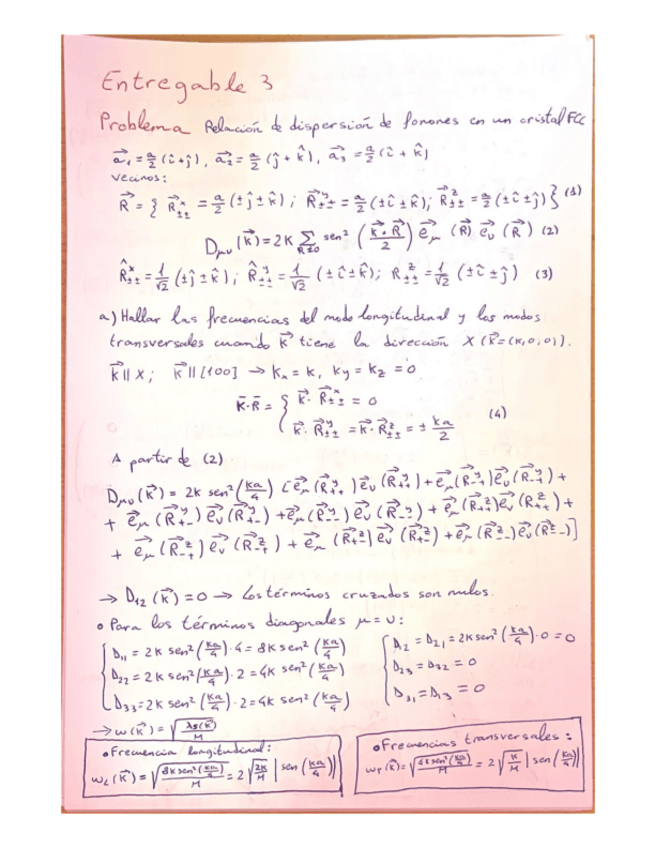 Entregable 3
Problema Relación de dispersión de fonones en un cristal FCC
a⃗₁ = a/2 (î+ĵ), a⃗₂ = a/2 (ĵ + k̂), a⃗₃ = a/2 (î + k̂)
vecinos:
R⃗ = { R⃗ˣ±± = a/2 (±ĵ ± k̂) ; R⃗ʸ±± = a/2 (±î ± k̂); R⃗ᶻ±± = a/2 (±î ± ĵ) } (1)
Dμν (k⃗) = 2K Σ R≠0 sen² (k⃗·R⃗/2) e⃗μ (R⃗) e⃗ν (R⃗) (2)
R̂ˣ±± = 1/√2 (±ĵ ± k̂) ; R̂ʸ±± = 1/√2 (±î ± k̂); R±±ᶻ = 1/√2 (±î ± ĵ) (3)
a) Hallar las frecuencias del modo longitudinal y los modos
transversales cuando k⃗ tiene la dirección X (k⃗=(k,0,0)).
k⃗ ∥ X ; k⃗ ∥ [100] → kx = k, ky = kz = 0
k̄·R̄ = { k⃗·R⃗ˣ±± = 0
k⃗·R⃗ʸ±± = k⃗·R⃗ᶻ±± = ± ka/2 (4)
A partir de (2)
Dμν(k⃗) = 2K sen² (ka/4) [e⃗μ(R⃗ʸ++)e⃗ν(R⃗ʸ++) + e⃗μ(R⃗ʸ-+)e⃗ν(R⃗ʸ-+) +
+ e⃗μ (R⃗ʸ+-) e⃗ν (R⃗ʸ+-) + e⃗μ (R⃗ʸ--) e⃗ν (R⃗ʸ--) + e⃗μ (R⃗ᶻ++)e⃗ν (R⃗ᶻ++) +
+ e⃗μ (R⃗ᶻ-+) e⃗ν (R⃗ᶻ-+) + e⃗μ (R⃗ᶻ+-) e⃗ν (R⃗ᶻ+-) + e⃗μ (R⃗ᶻ--) e⃗ν (R⃗ᶻ--)]
→ D₁₂ (k⃗) = 0 → Los términos cruzados son nulos.
• Para los términos diagonales μ = ν :
D₁₁ = 2K sen² (ka/4) · 4 = 8K sen² (ka/4)
D₂₂ = 2K sen² (ka/4) · 2 = 4K sen² (ka/4)
D₃₃ = 2K sen² (ka/4) · 2 = 4K sen² (ka/4)
D₁₂ = D₂₁ = 2K sen² (ka/4) · 0 = 0
D₂₃ = D₃₂ = 0
D₃₁ = D₁₃ = 0
→ ω(k⃗) = √(λs(k⃗)/M)
• Frecuencia longitudinal:
ωL (k⃗) = √(8K sen² (ka/4)/M) = 2 √(2K/M) |sen (ka/4)|
• Frecuencias transversales :
ωT (k⃗) = √(4K sen² (ka/4)/M) = 2 √(K/M) |sen (ka/4)|